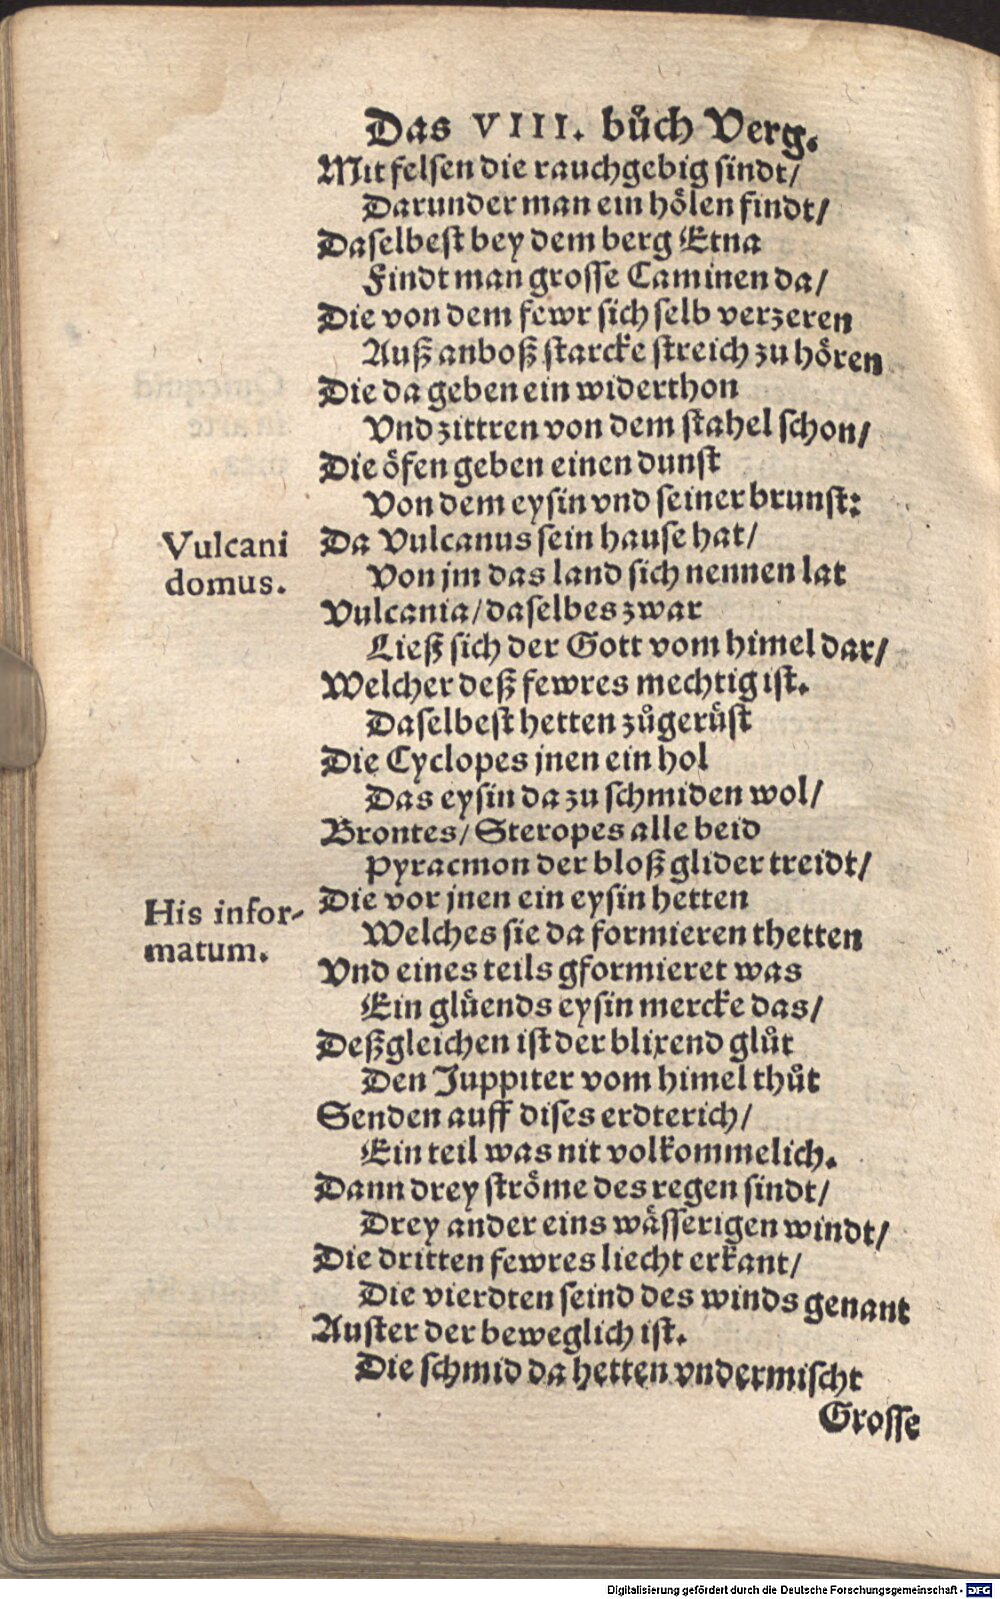 Das VIII. bůch Verg.
Mit felsen die rauchgebig sindt/
Darunder man ein hölen findt/
Daselbest bey dem berg Etna
Findt man grosse Caminen da/
Die von dem fewr sich selb verzeren
Auß anboß starcke streich zu hören
Die da geben ein widerthon
Vnd zittren von dem stahel schon/
Die öfen geben einen dunst
Von dem eysin vnd seiner brunst:
Vulcani domus.
Da Vulcanus sein hause hat/
Von jm das land sich nennen lat
Vulcania/ daselbes zwar
Ließ sich der Gott vom himel dar/
Welcher deß fewres mechtig ist.
Daselbest hetten zůgerüst
Die Cyclopes jnen ein hol
Das eysin da zu schmiden wol/
Brontes/ Steropes alle beid
Pyracmon der bloß glider treidt/
His infor-
matum.
Die vor jnen ein eysin hetten
Welches sie da formieren thetten
Vnd eines teils gformieret was
Ein glüends eysin mercke das/
Deßgleichen ist der blixend glůt
Den Juppiter vom himel thůt
Senden auff dises erdterich/
Ein teil was nit volkommelich.
Dann drey ströme des regen sindt/
Drey ander eins wässerigen windt/
Die dritten fewres liecht erkant/
Die vierdten seind des winds genant
Auster der beweglich ist.
Die schmid da hetten vndermischt
Grosse
Digitalisierung gefördert durch die Deutsche Forschungsgemeinschaft - DFG